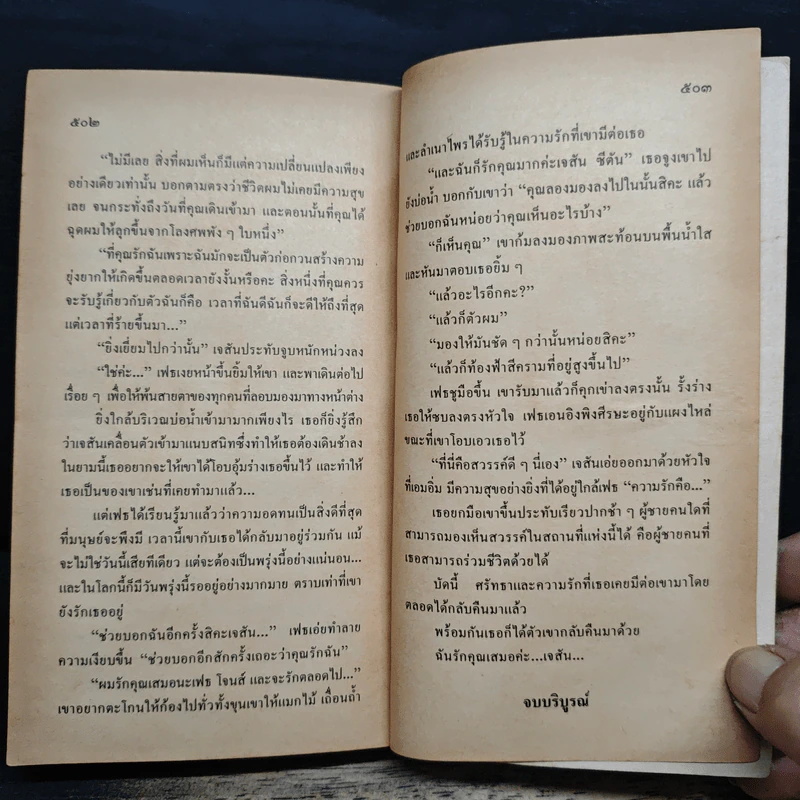 ๕๐๒
“ไม่มีเลย สิ่งที่ผมเห็นก็มีแต่ความเปลี่ยนแปลงเพียง
อย่างเดียวเท่านั้น บอกตามตรงว่าชีวิตผมไม่เคยมีความสุข
เลย จนกระทั่งถึงวันที่คุณเดินเข้ามา และตอนนั้นที่คุณได้
ฉุดผมให้ลุกขึ้นจากโลงศพพัง ๆ ใบหนึ่ง”
“ที่คุณรักฉันเพราะฉันมักจะเป็นตัวก่อกวนสร้างความ
ยุ่งยากให้เกิดขึ้นตลอดเวลายังงั้นหรือคะ สิ่งหนึ่งที่คุณควร
จะรับรู้เกี่ยวกับตัวฉันก็คือ เวลาที่ฉันดีฉันก็จะดีให้ถึงที่สุด
แต่เวลาที่ร้ายขึ้นมา...”
“ยิ่งเยี่ยมไปกว่านั้น” เจสันประทับจูบหนักหน่วงลง
“ใช่ค่ะ...” เฟธเงยหน้าขึ้นยิ้มให้เขา และพาเดินต่อไป
เรื่อย ๆ เพื่อให้พ้นสายตาของทุกคนที่ลอบมองมาทางหน้าต่าง
ยิ่งใกล้บริเวณบ่อน้ำเข้ามามากเพียงไร เธอก็ยิ่งรู้สึก
ว่าเจสันเคลื่อนตัวเข้ามาแนบสนิทซึ่งทำให้เธอต้องเดินช้าลง
ในยามนี้เธออยากจะให้เขาได้โอบอุ้มร่างเธอขึ้นไว้ และทำให้
เธอเป็นของเขาเช่นที่เคยทำมาแล้ว...
แต่เฟธได้เรียนรู้มาแล้วว่าความอดทนเป็นสิ่งดีที่สุด
ที่มนุษย์จะพึงมี เวลานี้เขากับเธอได้กลับมาอยู่ร่วมกัน แม้
จะไม่ใช่วันนี้เสียทีเดียว แต่จะต้องเป็นพรุ่งนี้อย่างแน่นอน...
และในโลกนี้ก็มีวันพรุ่งนี้รออยู่อย่างมากมาย ตราบเท่าที่เขา
ยังรักเธออยู่
“ช่วยบอกฉันอีกครั้งสิคะเจสัน...” เฟธเอ่ยทำลาย
ความเงียบขึ้น “ช่วยบอกอีกสักครั้งเถอะว่าคุณรักฉัน”
“ผมรักคุณเสมอนะเฟธ โจนส์ และจะรักตลอดไป...”
เขาอยากตะโกนให้ก้องไปทั่วทั้งขุนเขาให้แมกไม้ เถื่อนถ้ำ
๕๐๓
และลำเนาไพรได้รับรู้ในความรักที่เขามีต่อเธอ
“และฉันก็รักคุณมากค่ะเจสัน ซีดัน” เธอจูงเขาไป
ยังบ่อน้ำ บอกกับเขาว่า “คุณลองมองลงไปในนั้นสิคะ แล้ว
ช่วยบอกฉันหน่อยว่าคุณเห็นอะไรบ้าง”
“ก็เห็นคุณ” เขาก้มลงมองภาพสะท้อนบนพื้นน้ำใส
และหันมาตอบเธอยิ้ม ๆ
“แล้วอะไรอีกคะ?”
“แล้วก็ตัวผม”
“มองให้มันชัด ๆ กว่านั้นหน่อยสิคะ”
“แล้วก็ท้องฟ้าสีครามที่อยู่สูงขึ้นไป”
เฟธชูมือขึ้น เขารับมาแล้วก็คุกเข่าลงตรงนั้น รั้งร่าง
เธอให้ซบลงตรงหัวใจ เฟธเอนอิงพิงศีรษะอยู่กับแผงไหล่
ขณะที่เขาโอบเอวเธอไว้
“ที่นี่คือสวรรค์ดี ๆ นี่เอง” เจสันเอ่ยออกมาด้วยหัวใจ
ที่เอมอิ่ม มีความสุขอย่างยิ่งที่ได้อยู่ใกล้เฟธ “ความรักคือ...”
เธอยกมือเขาขึ้นประทับเรียวปากช้า ๆ ผู้ชายคนใดที่
สามารถมองเห็นสวรรค์ในสถานที่แห่งนี้ได้ คือผู้ชายคนที่
เธอสามารถร่วมชีวิตด้วยได้
บัดนี้ ศรัทธาและความรักที่เธอเคยมีต่อเขามาโดย
ตลอดได้กลับคืนมาแล้ว
พร้อมกันเธอก็ได้ตัวเขากลับคืนมาด้วย
ฉันรักคุณเสมอค่ะ...เจสัน...
จบบริบูรณ์